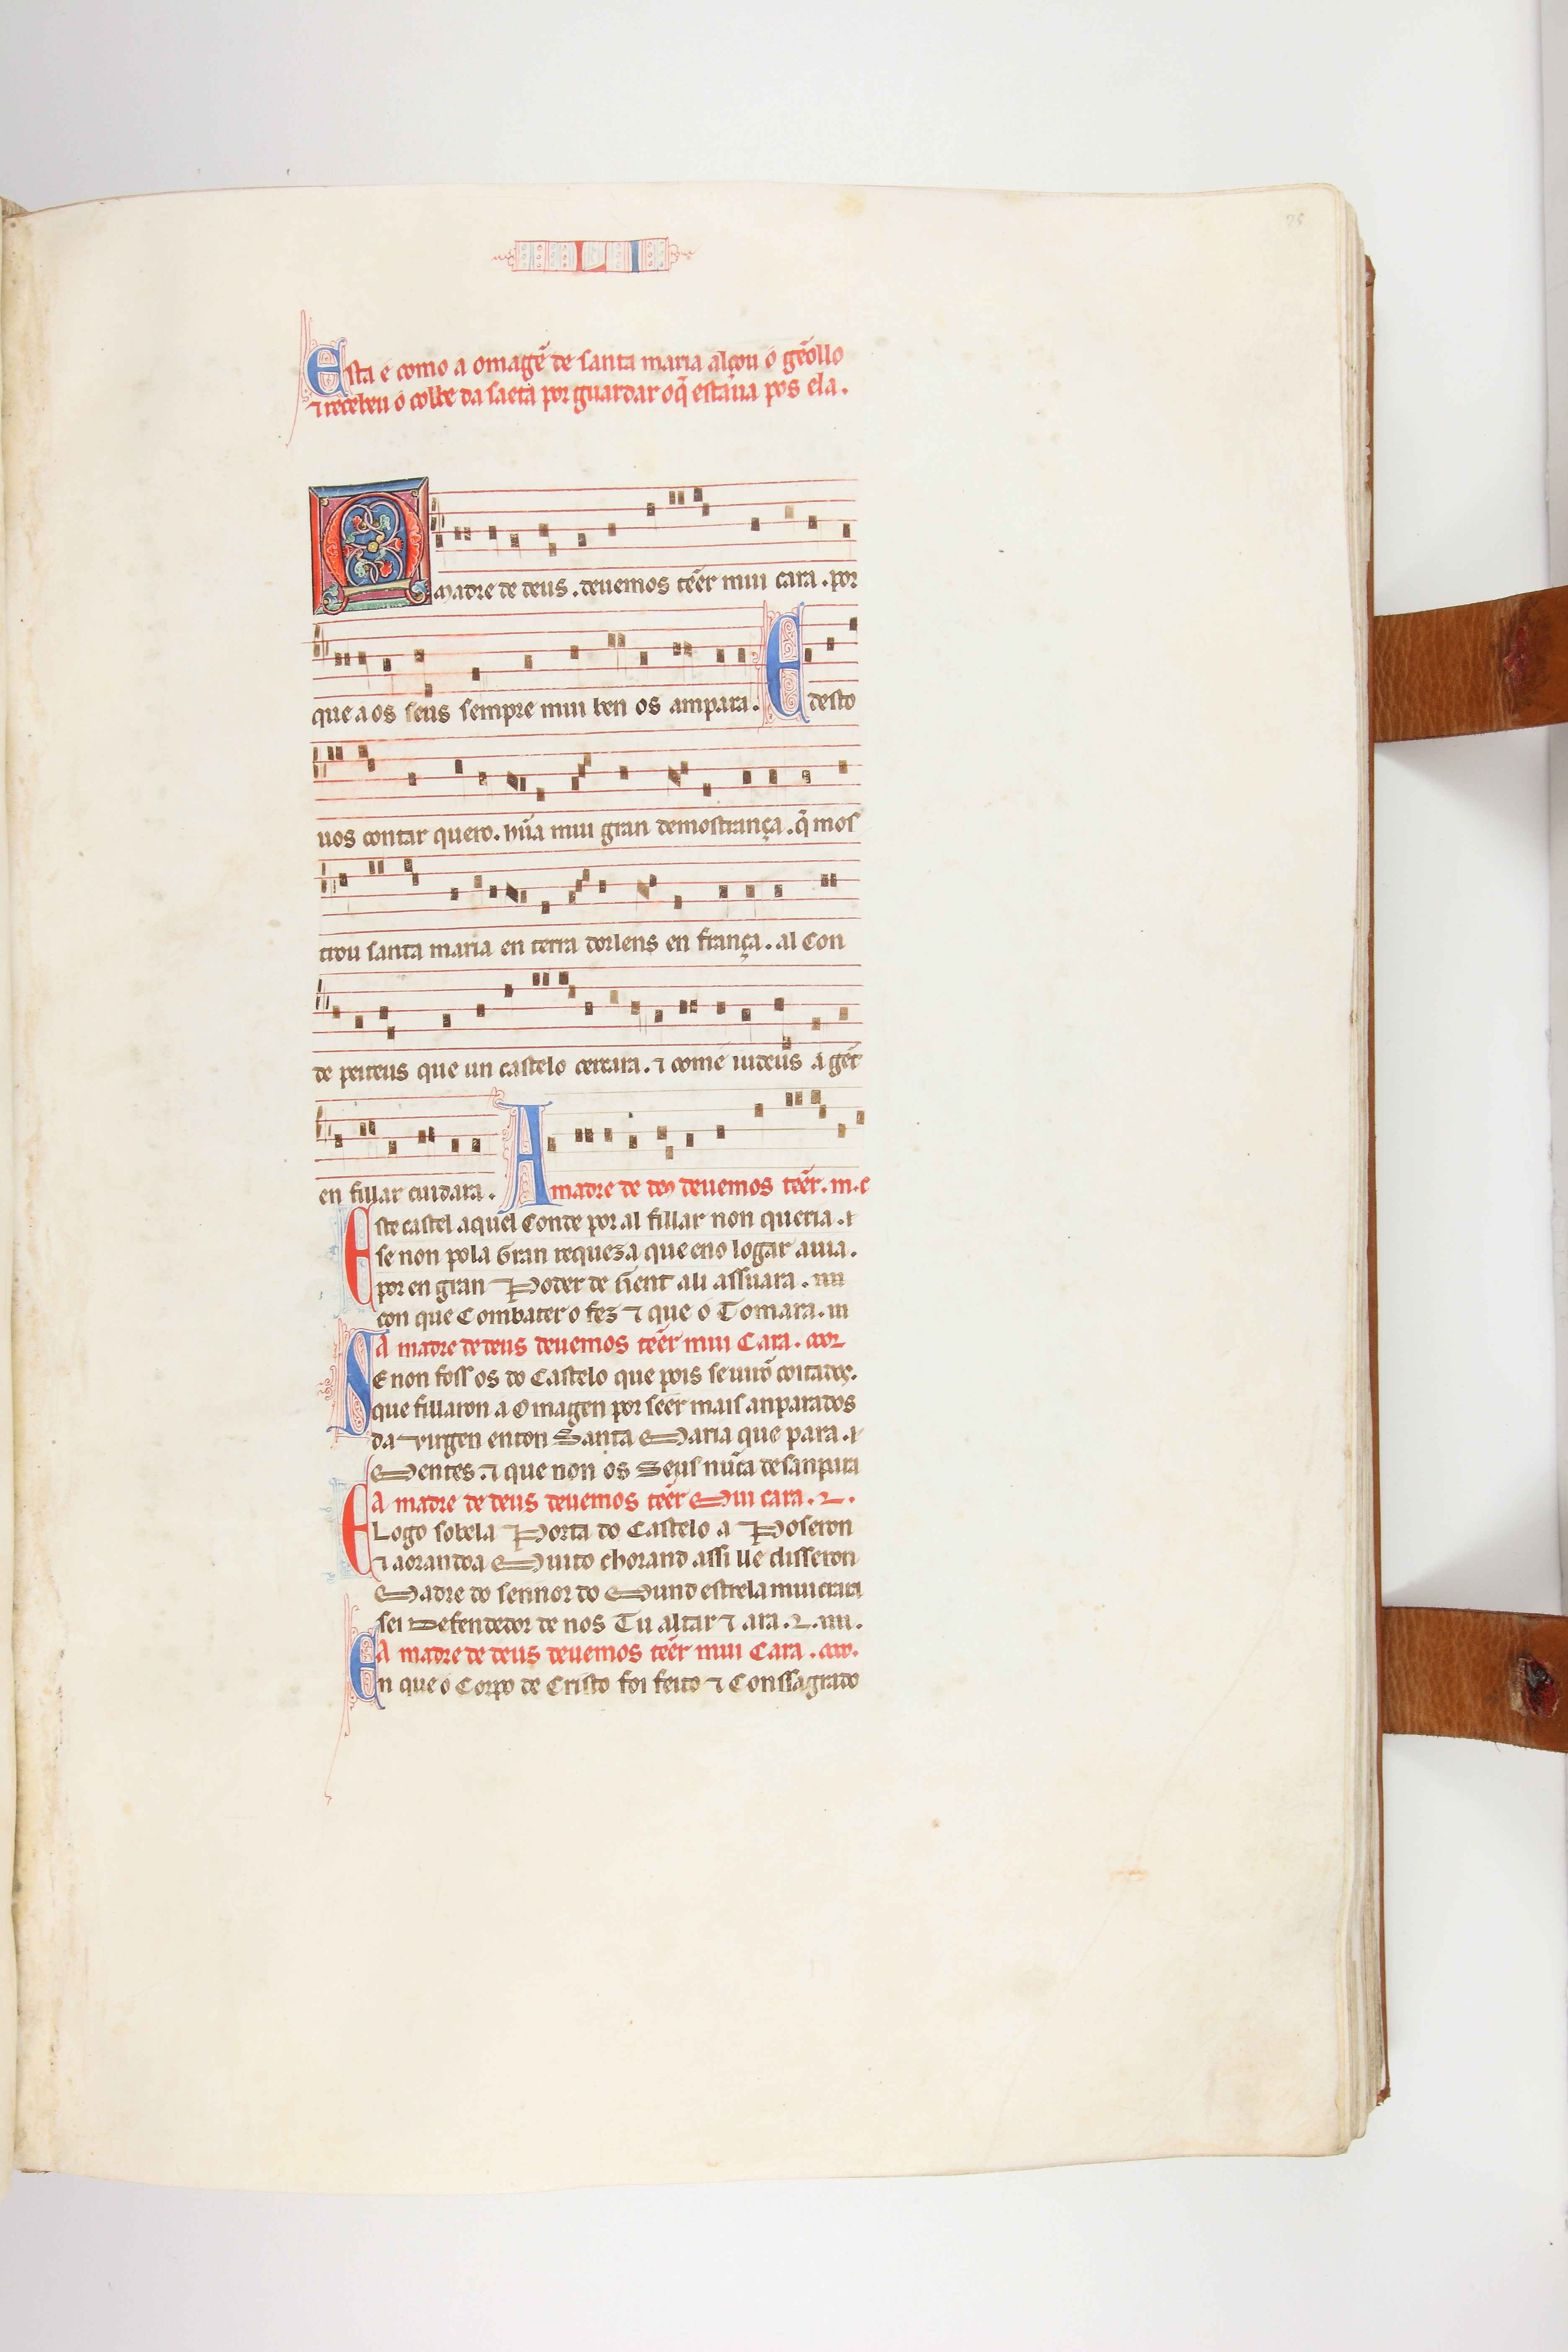 LI
Esta é como a omagẽ de santa maria alçou o gẽollo
⁊ recebeu o colbe da saeta por guardar o q̃ estaua pos ela.
A madre de deus. deuemos tẽer mui cara. por
que aos seus sempre mui ben os ampara. E desto
uos contar quero. hũa mui gran demostrança. q̃ mos
trou santa maria en terra dorlens en frança. al Con
de peiteus que un castelo cercara. ⁊ come iudeus a gẽt
en fillar cuidara. A madre de de⁹ deuemos tẽer. m. c
Este castel aquel Conte por al fillar non queria.
se non pola Gran requeza que eno logar auia.
por en gran Poder de Gent ali assũara.
con que Combater o fez ⁊ que o Tomara.
A madre de deus deuemos tẽer mui Cara.
SE non foss os do Castelo que pois se uirõ coitados.
que fillaron a Omagen por seer mais anparados
da virgen enton Santa Maria que para
Mentes. ⁊ que non os Seus nũca desanpara
A madre de deus deuemos tẽer Mui cara.
E Logo sobela Porta do Castelo a Poseron
⁊ aorandoa Muito chorand assi lle disseron
Madre do sennor do Mund estrela mui crara
sei Defendedor de nos Tu altar ⁊ ara.
A madre de deus deuemos tẽer mui Cara.
En que o Corpo de Cristo foi feito ⁊ Conssagrado